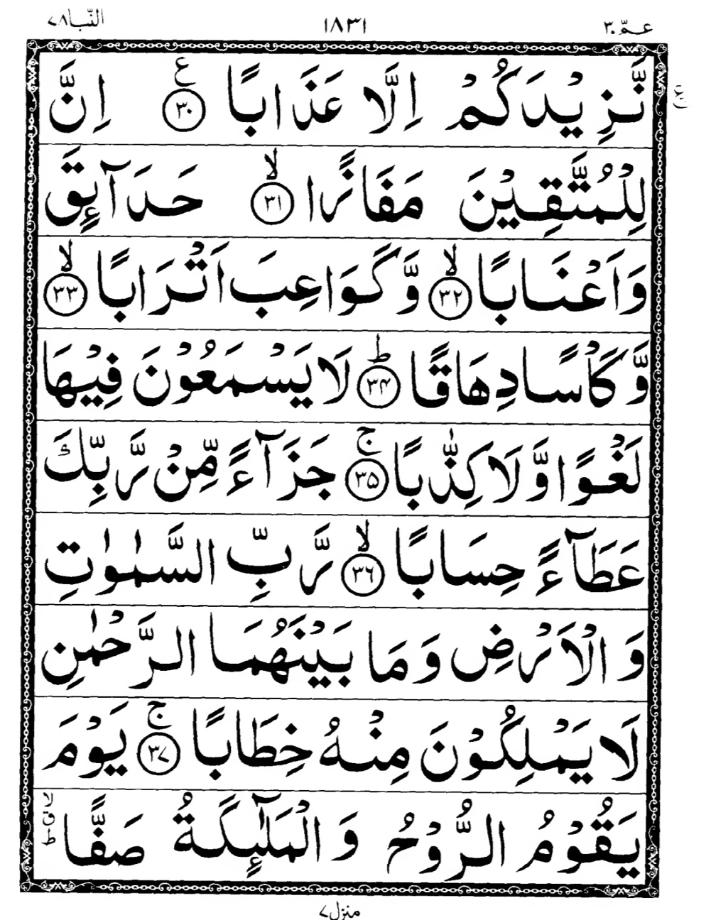 عـمّ ٣٠ ١٨٣١ النّبا ٧٨
نَّزِيْدَكُمْ اِلَّا عَذَابًا ۝٣٠ ع اِنَّ ع
لِلْمُتَّقِيْنَ مَفَازًا ۝٣١ۙ حَدَآئِقَ
وَاَعْنَابًا ۝٣٢ۙ وَّكَوَاعِبَ اَتْرَابًا ۝٣٣ۙ
وَّكَاْسًا دِهَاقًا ۝٣٤ؕ لَا يَسْمَعُوْنَ فِيْهَا
لَغْوًا وَّلَا كِذّٰبًا ۝٣٥ۚ جَزَآءً مِّنْ رَّبِّكَ
عَطَآءً حِسَابًا ۝٣٦ۙ رَّبِّ السَّمٰوٰتِ
وَ الْاَرْضِ وَ مَا بَيْنَهُمَا الرَّحْمٰنِ
لَا يَمْلِكُوْنَ مِنْهُ خِطَابًا ۝٣٧ۚ يَوْمَ
يَقُوْمُ الرُّوْحُ وَ الْمَلٰٓئِكَةُ صَفًّا لا ق ط
منزل ٧